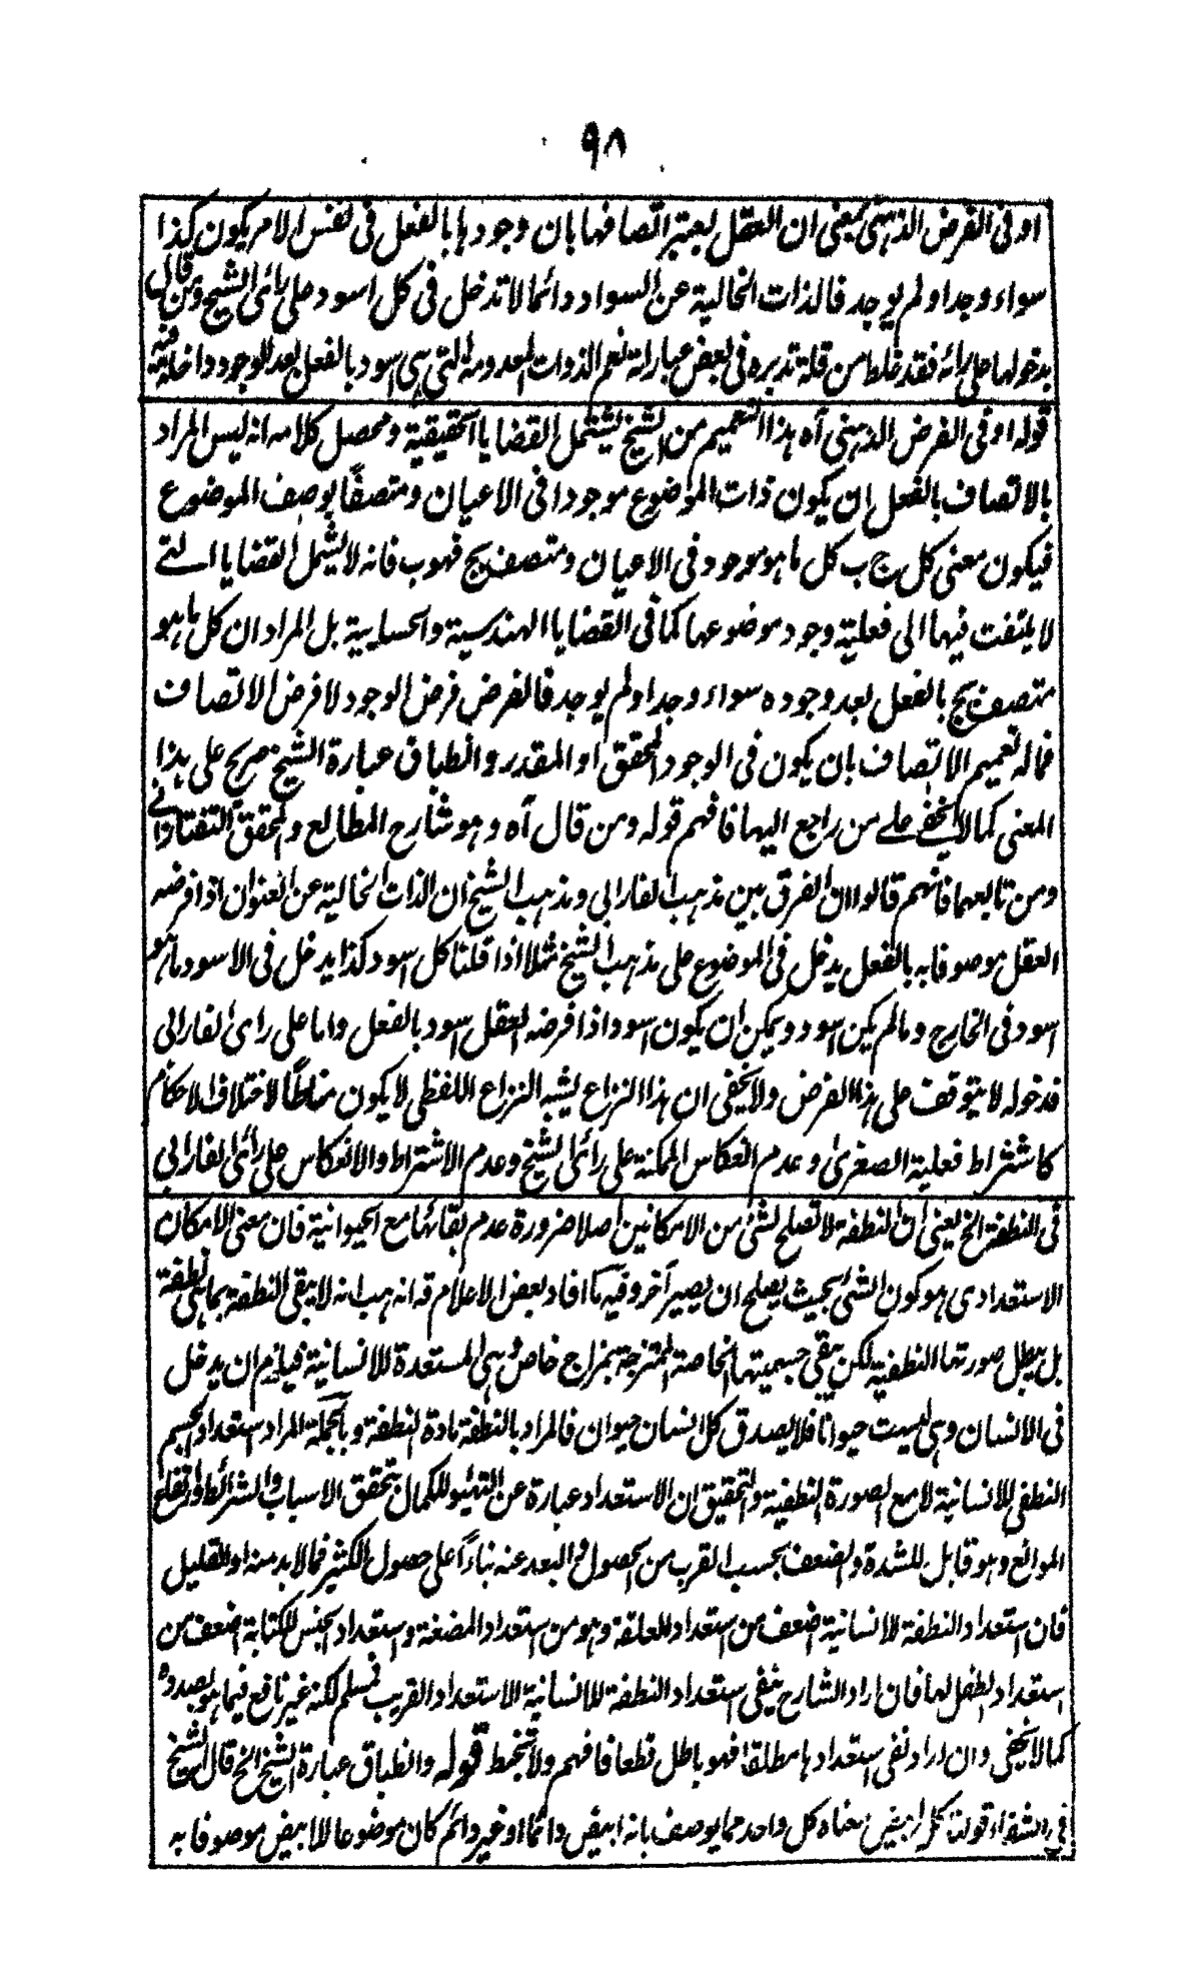 ٩٨
او فى الفرض الذهنى بمعنى ان العقل يعتبر اتصافها بان وجودها بالفعل فى نفس الامر يكون كذا
سواء وجد اولم يوجد فالذات الخالية عن السواد دائما لا تدخل فى كل اسود على رائى الشيخ ومن قال
بدخولها على رائه فقد غلط من قلة تدبره فى بعض عباراته نعم الذوات المعدومة التى هى اسود بالفعل بعد الوجود داخلة فيه
قوله او فى الفرض الذهنى آه هذا التعميم من الشيخ ليشتمل القضايا الحقيقية ومحصل كلامه انه ليس المراد
بالاتصاف بالفعل ان يكون ذات الموضوع موجودا فى الاعيان ومتصفًا بوصف الموضوع
فيكون معنى كل ج ب كل ما هو موجود فى الاعيان ومتصف بج فهو ب فانه لا يشمل القضايا التے
لا يلتفت فيها الى فعلية وجود موضوعها كما فى القضايا الهندسية والحسابية بل المراد ان كل ما هو
متصف بج بالفعل بعد وجوده سواء وجد اولم يوجد فالفرض فرض الوجود لا فرض الاتصاف
فماله تعميم الاتصاف بان يكون فى الوجود المحقق او المقدر وانطباق عبارة الشيخ صريح على هذا
المعنى كما لا يخفے علے من راجع اليها فافهم قوله ومن قال آه وهو شارح المطالع والمحقق التفتازانے
ومن تابعهما فانهم قالوا ان الفرق بين مذهب الفارابى ومذهب الشيخ ان الذات الخالية عن العنوان اذا فرضه
العقل موصوفا به بالفعل يدخل فى الموضوع على مذهب الشيخ مثلا اذا قلنا كل اسود كذا يدخل فى الاسود ما هو
اسود فى الخارج وما لم يكن اسود ويمكن ان يكون اسود اذا فرضه العقل اسود بالفعل واما على راى الفارابى
فدخوله لا يتوقف على هذا الفرض ولا يخفى ان هذا النزاع يشبه النزاع اللفظى لا يكون مناطًا لاختلاف الاحكام
كاشتراط فعلية الصغرى وعدم انعكاس الممكنة على رائى الشيخ وعدم الاشتراط والانعكاس على رائى الفارابى
فى النطفة الخ يعنى ان النطفة لا تصلح لشئ من الامكانين اصلا ضرورة عدم بقائها مع الحيوانية فان معنى الامكان
الاستعدادى هو كون الشئ بحيث يصلح ان يصير آخر وفيه ما افاد بعض الاعلام قه انه هب انه لا يبقى النطفة بما هى نطفة
بل يبطل صورتها النطفية لكن يبقى جسميتها الخاصة الممتزجة بمزاج خاص وهى المستعدة للانسانية فيلزم ان يدخل
فى الانسان وهى ليست حيوانا فلا يصدق كل انسان حيوان فالمراد بالنطفة مادة النطفة وبالجملة المراد استعداد الجسم
النطفى للانسانية لا مع الصورة النطفية والتحقيق ان الاستعداد عبارة عن التهيئو للكمال بتحقق الاسباب والشرائط وارتفاع
الموانع وهو قابل للشدة والضعف بحسب القرب من الحصول والبعد عنه بناءًا على حصول الكثير فما لا بد منه او القليل
فان استعداد النطفة للانسانية اضعف من استعداد العلقة وهو من استعداد المضغة واستعداد الجنين للكتابة اضعف من
استعداد الطفل لها فان اراد الشارح بنفى استعداد النطفة للانسانية الاستعداد القريب فمسلم لكنه غير نافع فيما هو بصدده
كما لا يخفى وان اراد نفى استعدادها مطلقا فهو باطل قطعا فافهم ولا تخبط قوله وانطباق عبارة الشيخ الخ قال الشيخ
فى الشفاء قولنا كل ابيض معناه كل واحد مما يوصف بانه ابيض دائما او غير دائم كان موضوعا للابيض موصوفا به